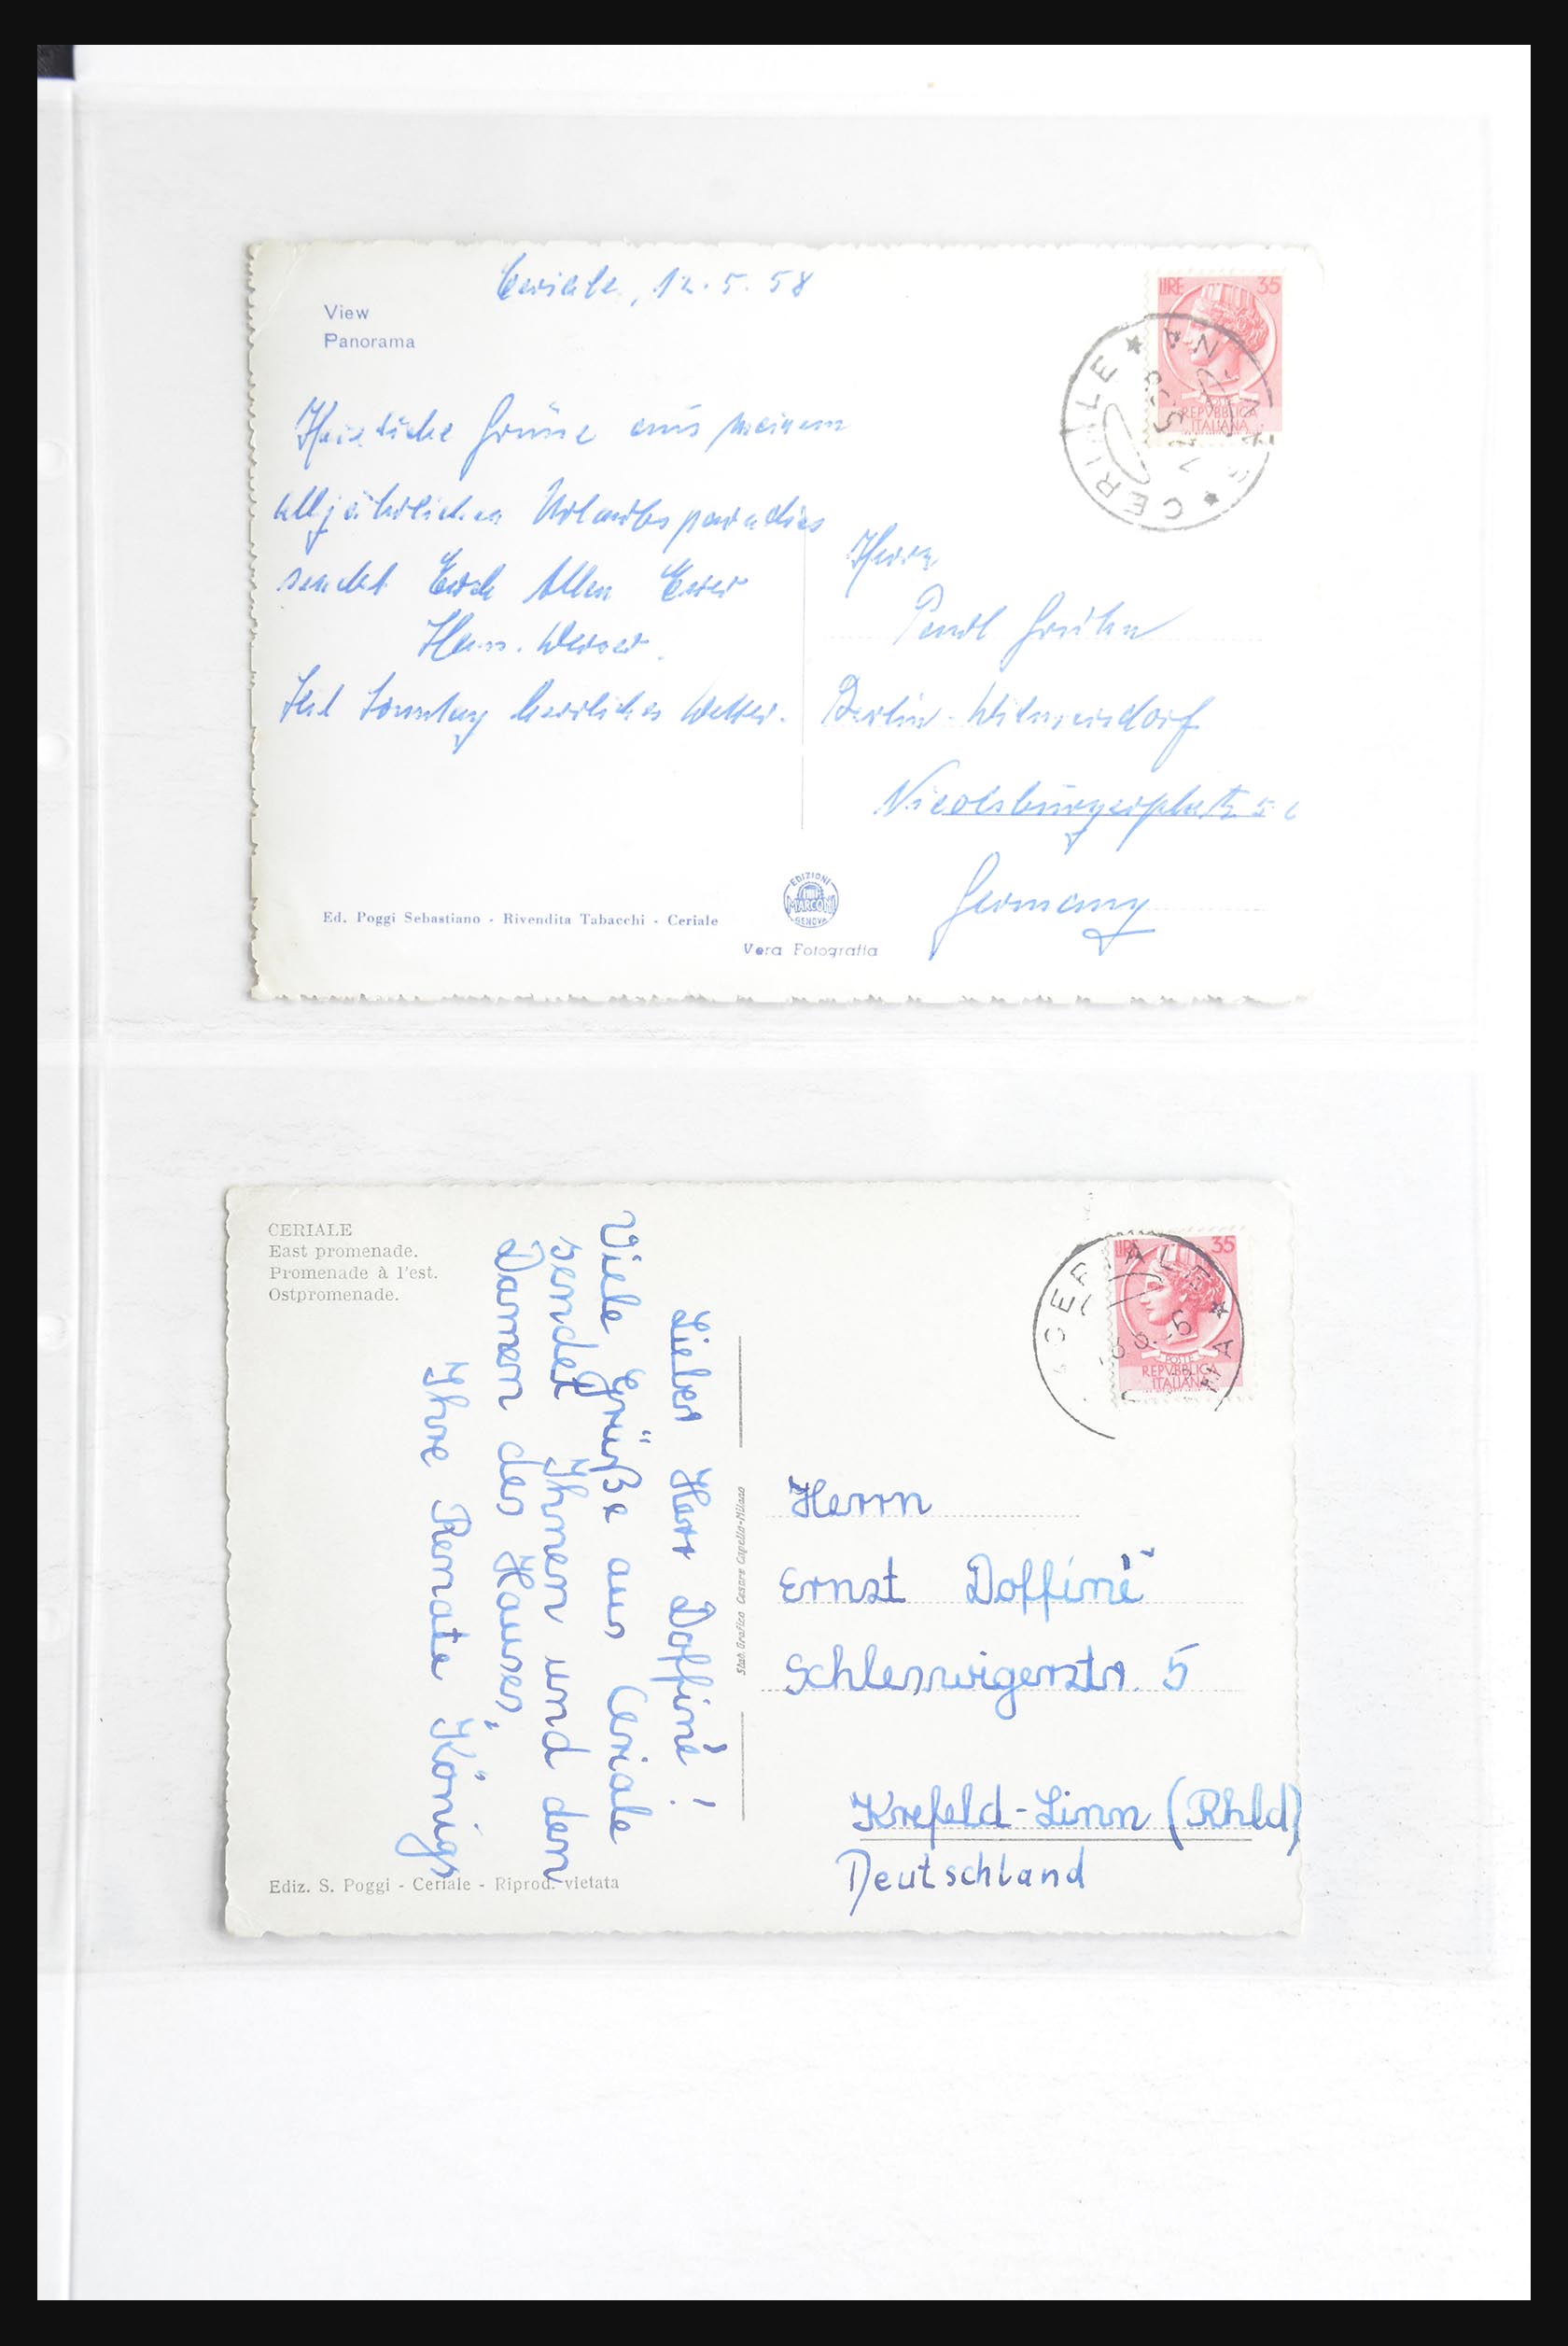 Ceriale, 12.5.58
View
Panorama
LIRE 35
POSTE
REPVBBLICA
ITALIANA
CERIALE
Herzliche Grüsse aus meinem
alljährlichen Urlaubsparadies
sendet Euch Allen Euer
Hans-Werner.
Seit Sonntag herrliches Wetter.
Herrn
Paul
Berlin-Wilmersdorf
Nicolsburgerplatz
Germany
EDIZIONI
MARCONI
GENOVA
Ed. Poggi Sebastiano - Rivendita Tabacchi - Ceriale
Vera Fotografia
CERIALE
East promenade.
Promenade à l'est.
Ostpromenade.
LIRE 35
POSTE
REPVBBLICA
ITALIANA
CERIALE
Lieber Herr Doffiné!
Viele Grüße aus Ceriale
sendet Ihnen und den
Damen des Hauses,
Ihre Renate Königs
Stab. Grafico Cesare Capello-Milano
Herrn
Ernst Doffiné
Schleswigerstr. 5
Krefeld-Linn (Rhld)
Deutschland
Ediz. S. Poggi - Ceriale - Riprod. vietata